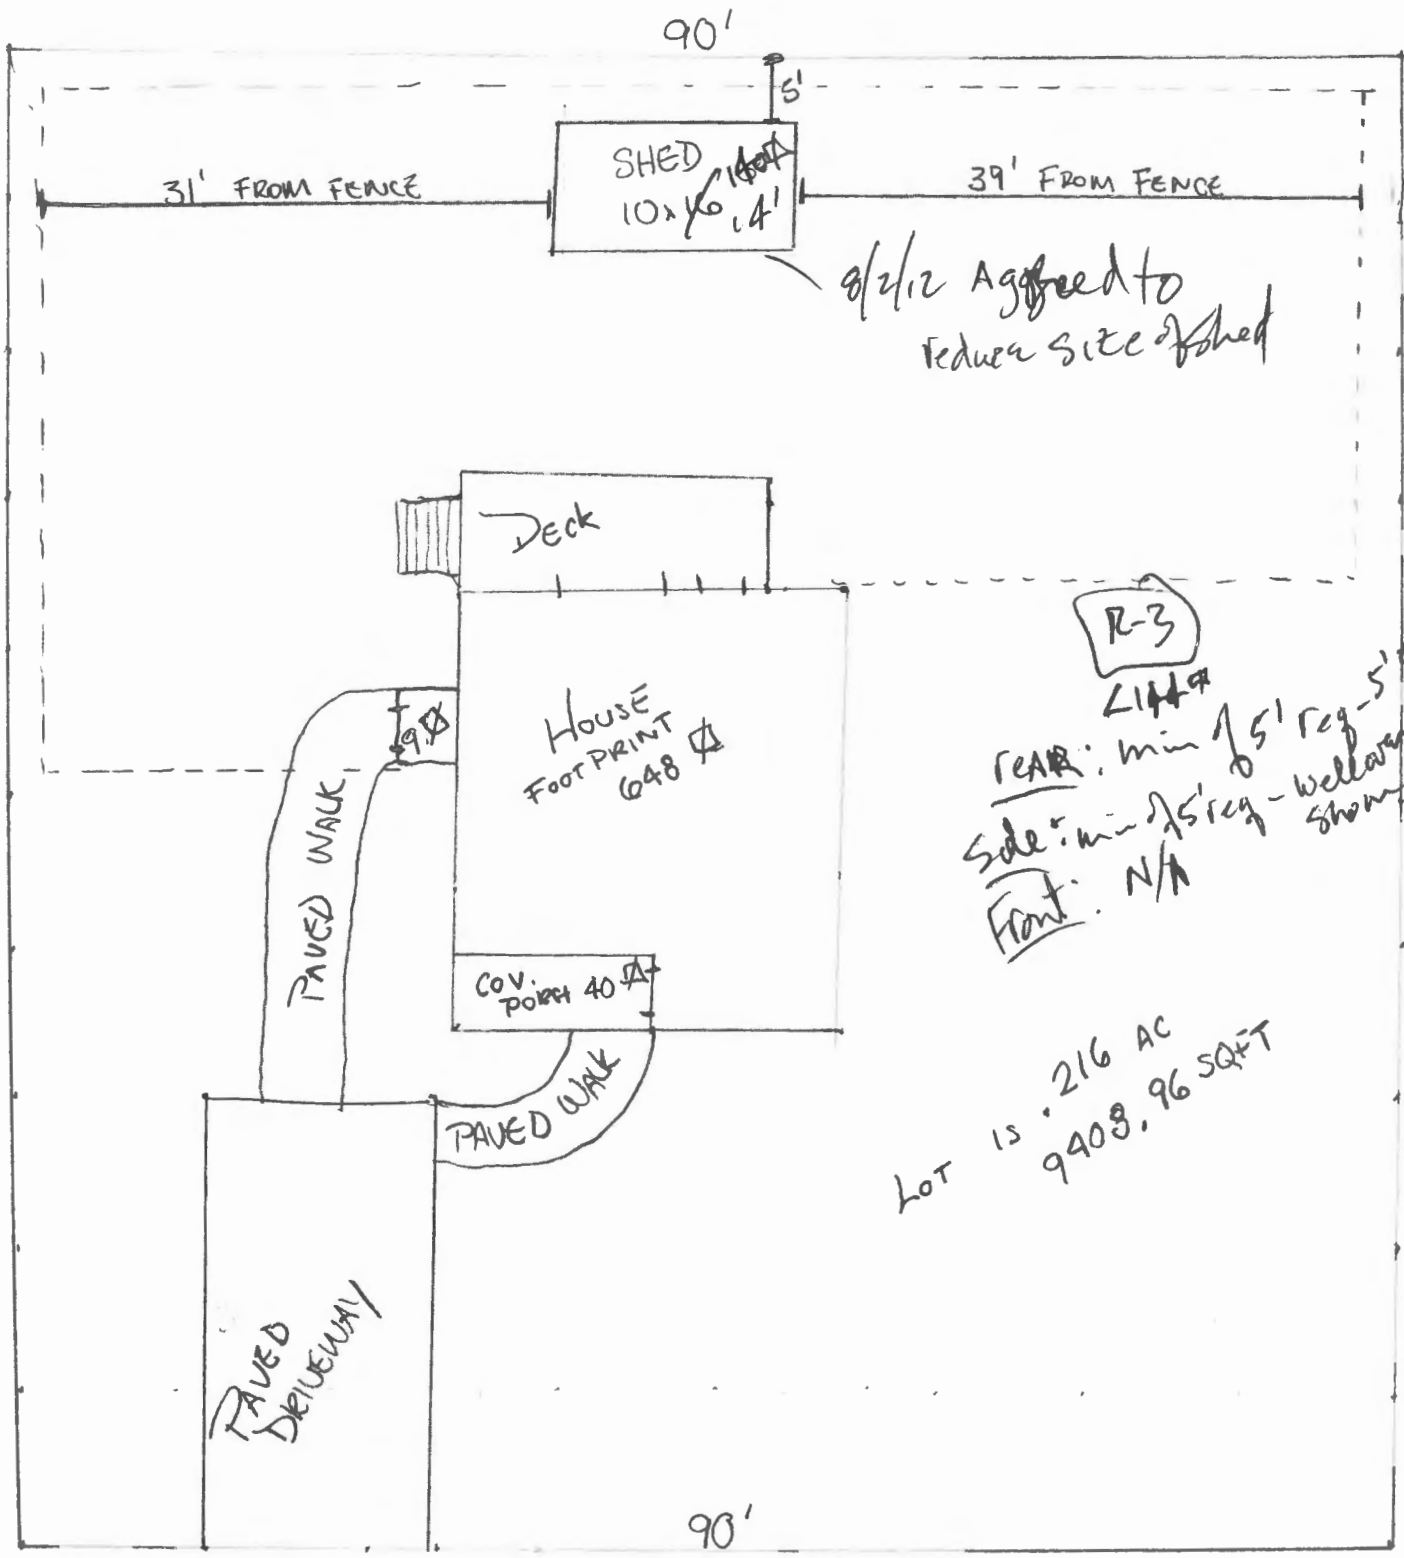 90'
5'
SHED
10x16 14'
31' FROM FENCE
39' FROM FENCE
8/2/12 Agreed to
reduce size of shed
DECK
R-3
<144
rear: min of 5' req - 5'
Side: min of 5' req - well over
shown
Front: N/A
9
HOUSE
FOOTPRINT
648
PAVED WALK
COV.
PORCH 40
PAVED WALK
LOT IS .216 AC
9408.96 SQFT
PAVED
DRIVEWAY
90'